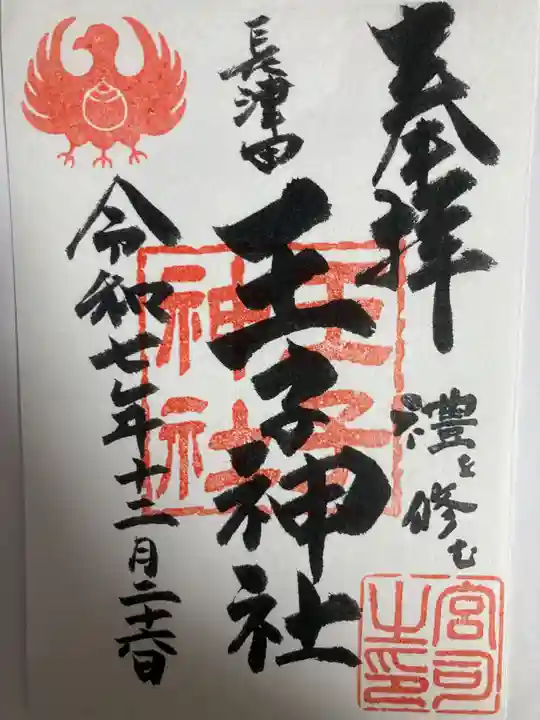 奉拝
澧を修む
宮司之印
長津田
王子神社
王子神社
令和七年十二月二十六日